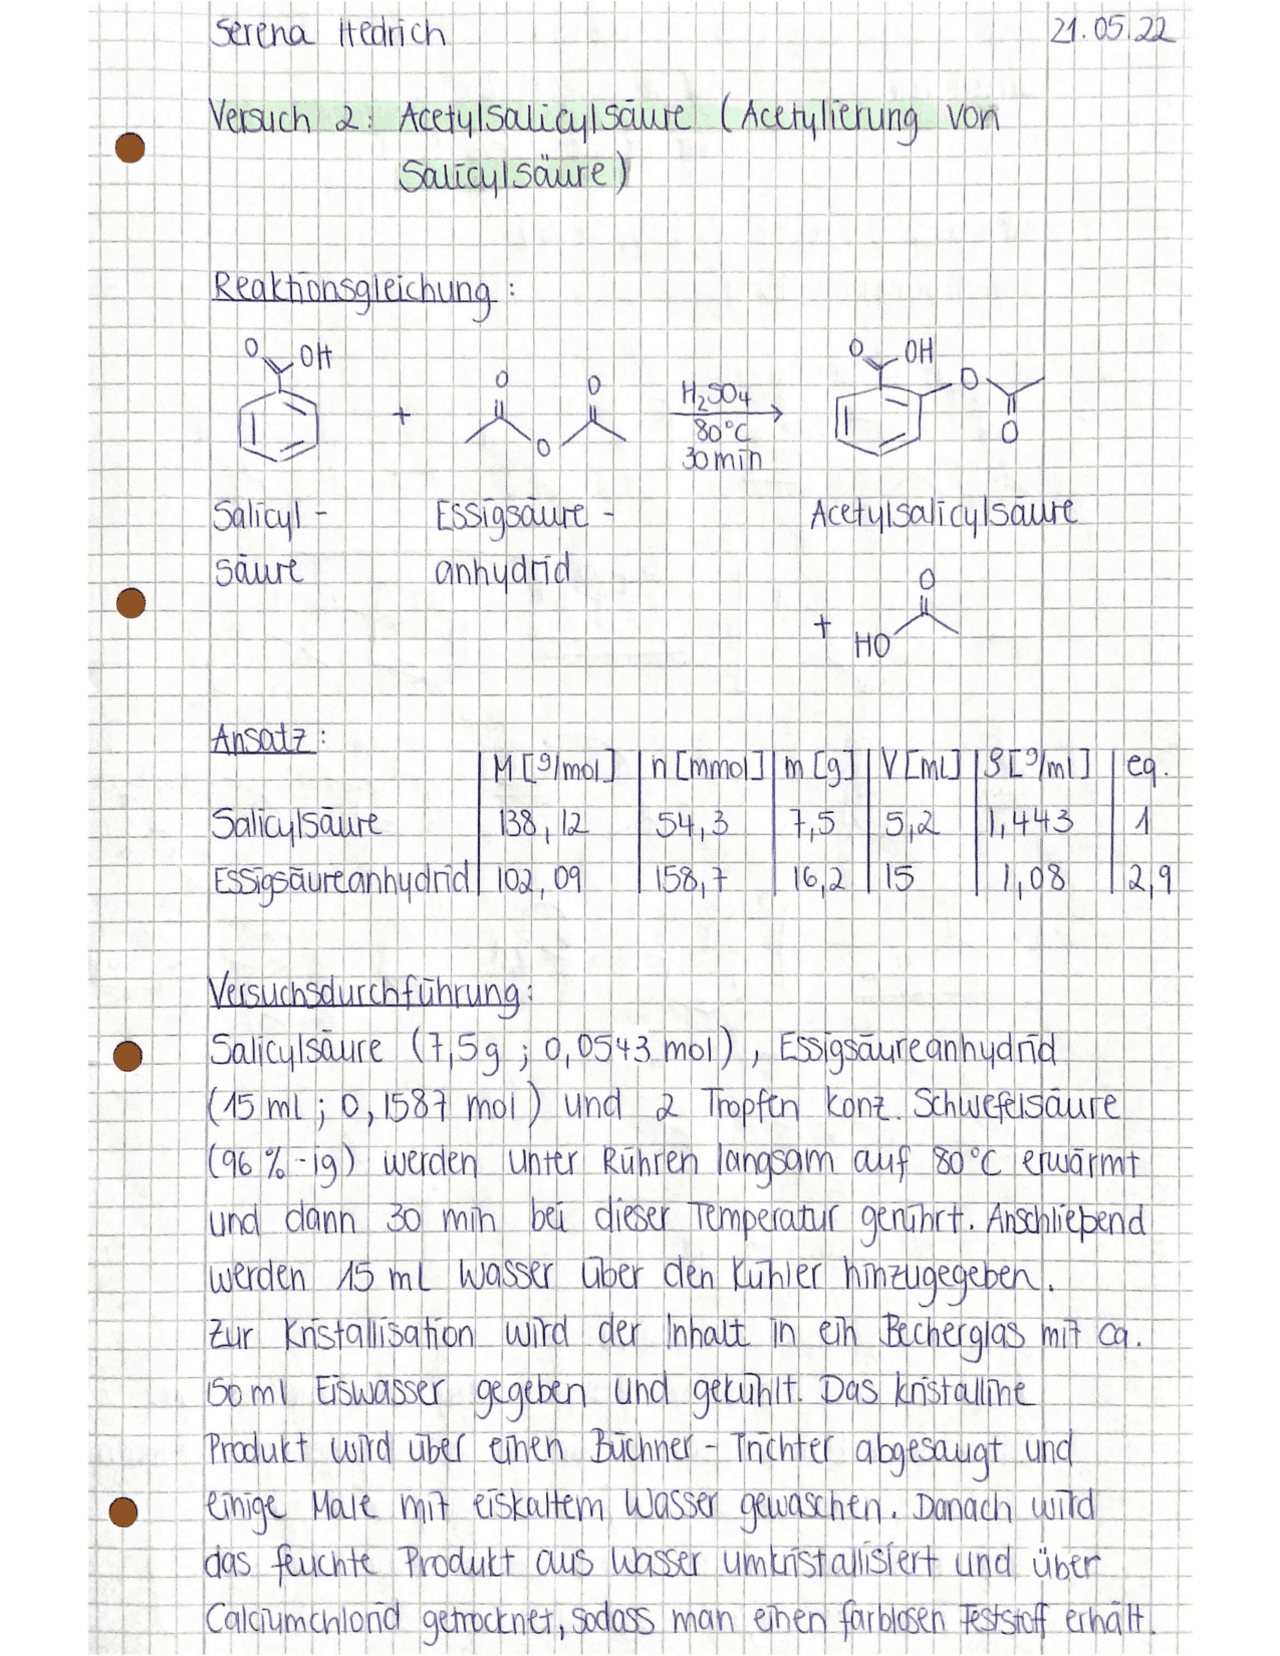 Serena Hedrich 21.05.22
Versuch 2: Acetylsalicylsäure (Acetylierung von
Salicylsäure)
Reaktionsgleichung:
O OH + O O O H₂SO₄ 80°C 30 min O OH O O
Salicyl- Essigsäure- Acetylsalicylsäure
säure anhydrid
+ HO O
Ansatz:
M [g/mol] n [mmol] m [g] V [ml] ρ [g/ml] eq.
Salicylsäure 138,12 54,3 7,5 5,2 1,443 1
Essigsäureanhydrid 102,09 158,7 16,2 15 1,08 2,9
Versuchsdurchführung:
Salicylsäure (7,5g ; 0,0543 mol), Essigsäureanhydrid
(15 ml ; 0,1587 mol) und 2 Tropfen konz. Schwefelsäure
(96 %-ig) werden unter Rühren langsam auf 80°C erwärmt
und dann 30 min bei dieser Temperatur gerührt. Anschließend
werden 15 mL Wasser über den Kühler hinzugegeben.
Zur Kristallisation wird der Inhalt in ein Becherglas mit ca.
150 ml Eiswasser gegeben und gekühlt. Das kristalline
Produkt wird über einen Büchner-Trichter abgesaugt und
einige Male mit eiskaltem Wasser gewaschen. Danach wird
das feuchte Produkt aus Wasser umkristallisiert und über
Calciumchlorid getrocknet, sodass man einen farblosen Feststoff erhält.